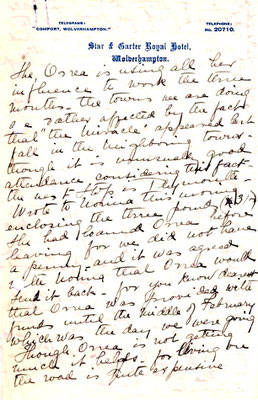 TELEGRAMS:
"COMFORT, WOLVERHAMPTON."
TELEPHONE:
No. 20710.
Star & Garter Royal Hotel,
Wolverhampton.
She, Orrea is using all her
influence to work the three
months. The towns we are doing
are rather affected by the fact
that the 'miracle' appeared last
fall in the neighboring towns
though it is unusually good
attendance considering the fact.
The next stop is Plymouth.
Wrote to Norina this morning
enclosing the three pounds (£3/)
She had loaned Orrea before
leaving for we did not have
a penny and it was agreed
Norina that Orrea would
send it back - for you know dearest
that Orrea was provided with
funds until the middle of February
which was the day we were going
Though Orrea is not getting
much it helps - for living on
the road is quite expensive